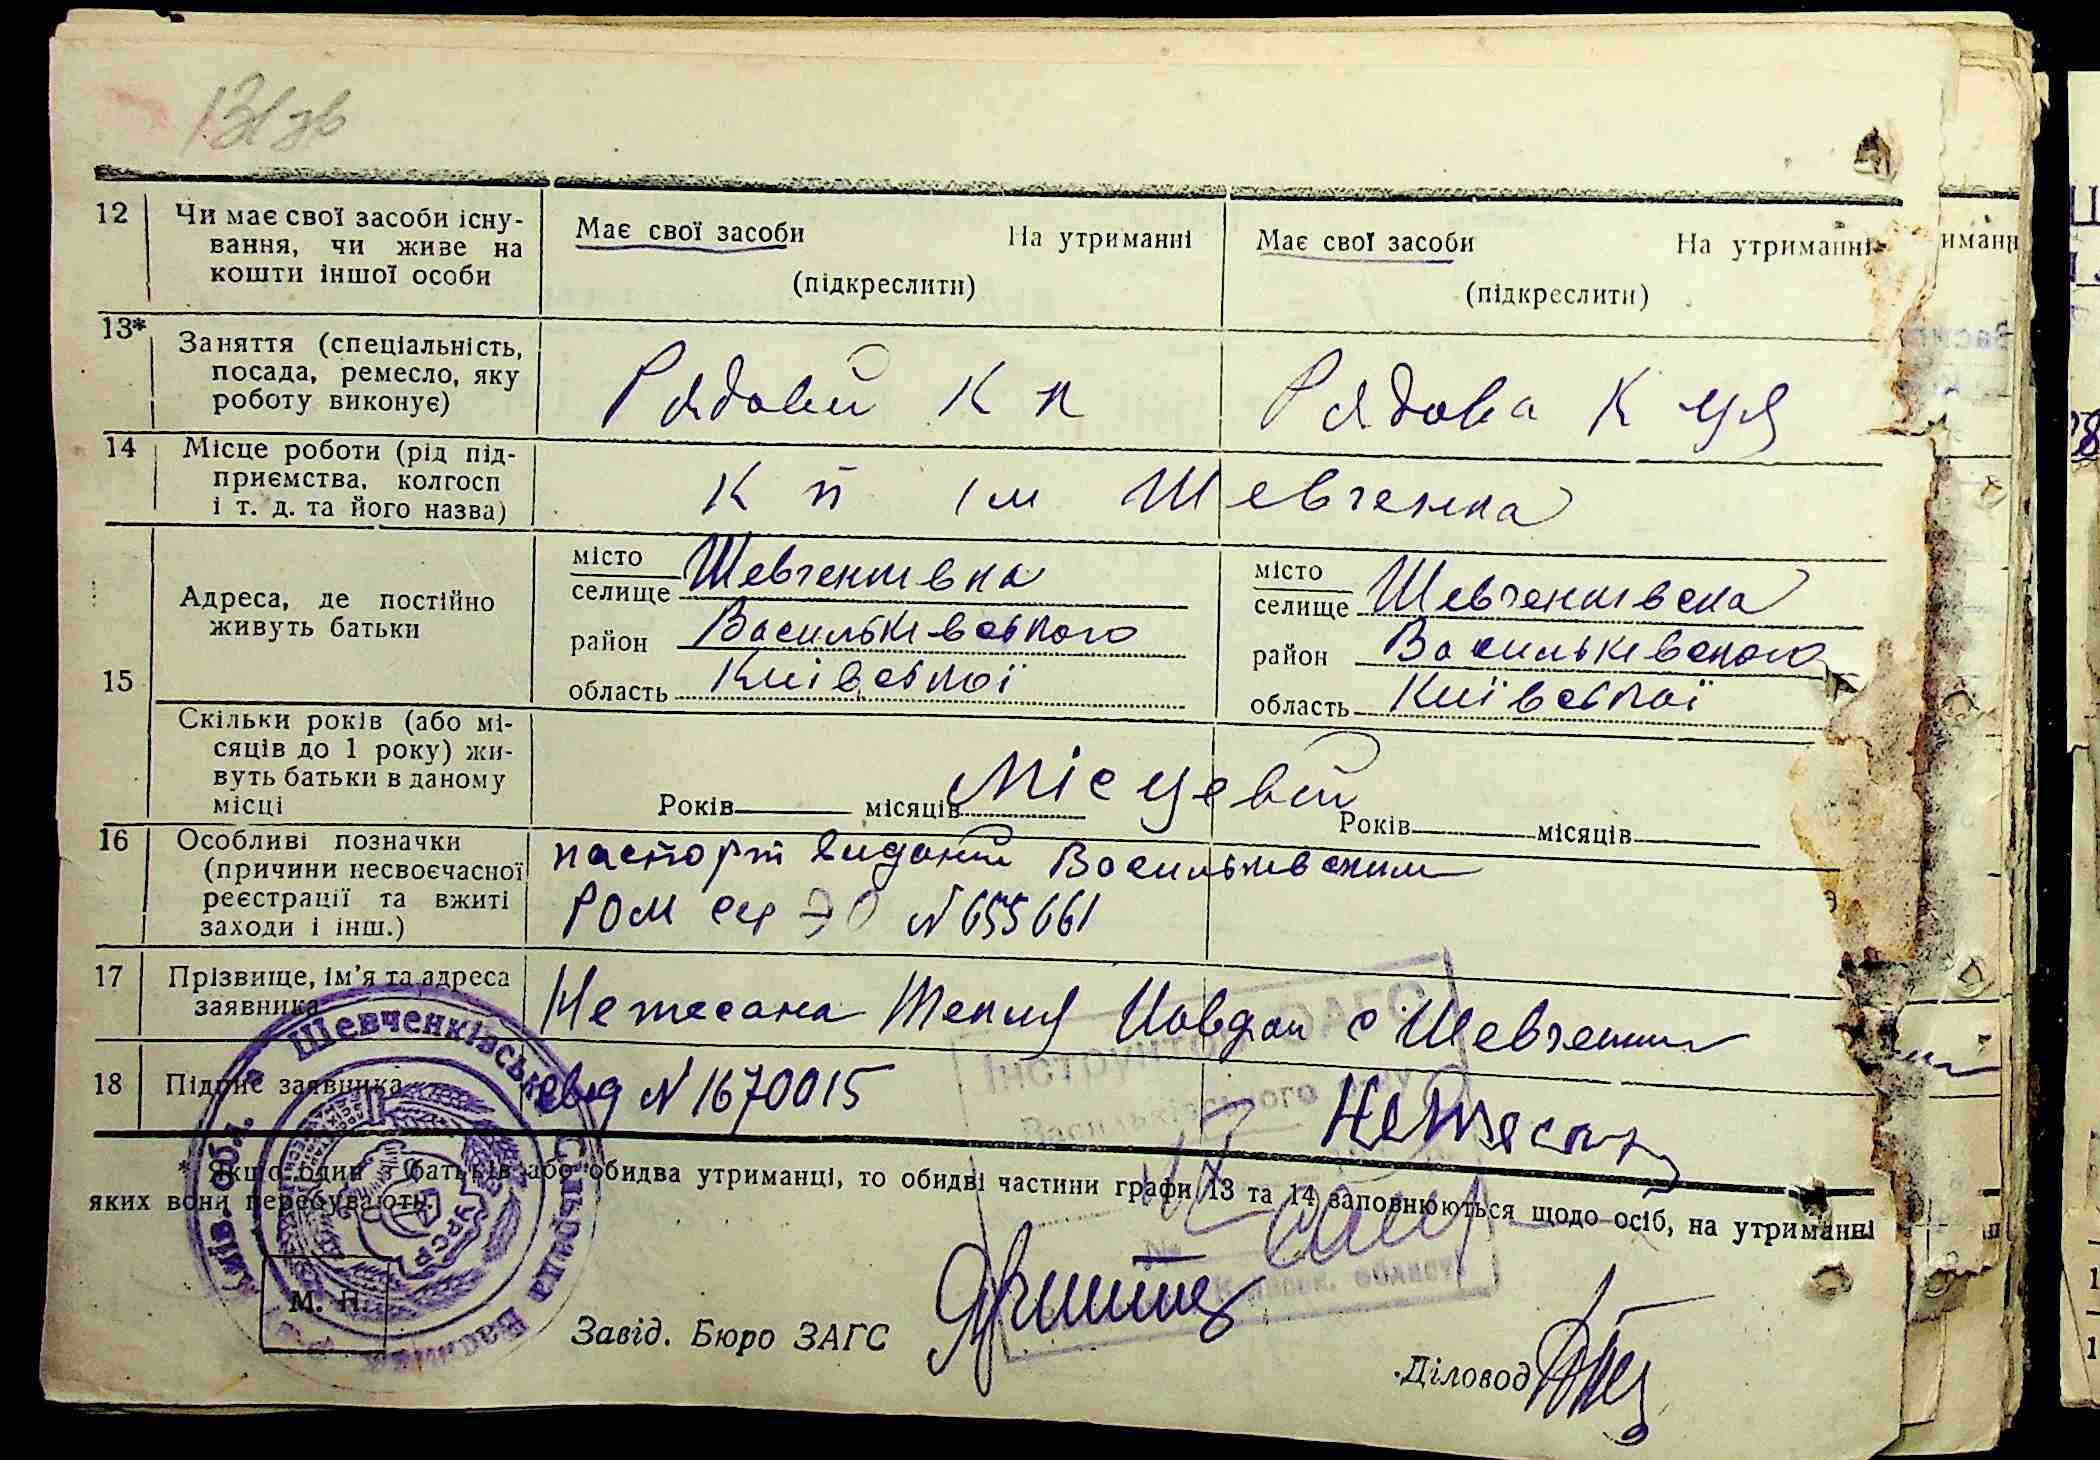 12 Чи має свої засоби існу-
вання, чи живе на
кошти іншої особи
Має свої засоби На утриманні
(підкреслити)
Має свої засоби На утриманні
(підкреслити)
13* Заняття (спеціальність,
посада, ремесло, яку
роботу виконує)
Рядовий К п
Рядова К ця
14 Місце роботи (рід під-
приємства, колгосп
і т. д. та його назва)
К п ім Шевченка
15 Адреса, де постійно
живуть батьки
місто
селище Шевченківка
район Васильківського
область Київської
місто
селище Шевченківска
район Васильківського
область Київської
Скільки років (або мі-
сяців до 1 року) жи-
вуть батьки в даному
місці
Місцевий
Років місяців
Років місяців
16 Особливі позначки
(причини несвоєчасної
реєстрації та вжиті
заходи і інш.)
паспорт виданий Васильківским
РОМ сер ЭО N 655661
17 Прізвище, ім'я та адреса
заявника
Нетесана с Шевченки
18 Підпис заявника
свід N 1670015
* Якщо один з батьків або обидва утриманці, то обидві частини графи 13 та 14 заповнюються щодо осіб, на утриманні
яких вони перебувають.
М. П.
Завід. Бюро ЗАГС
Діловод
Шевченківська Сільрада
Київ. обл.
УРСР
Інструктор ЗАГС
Васильківського
області